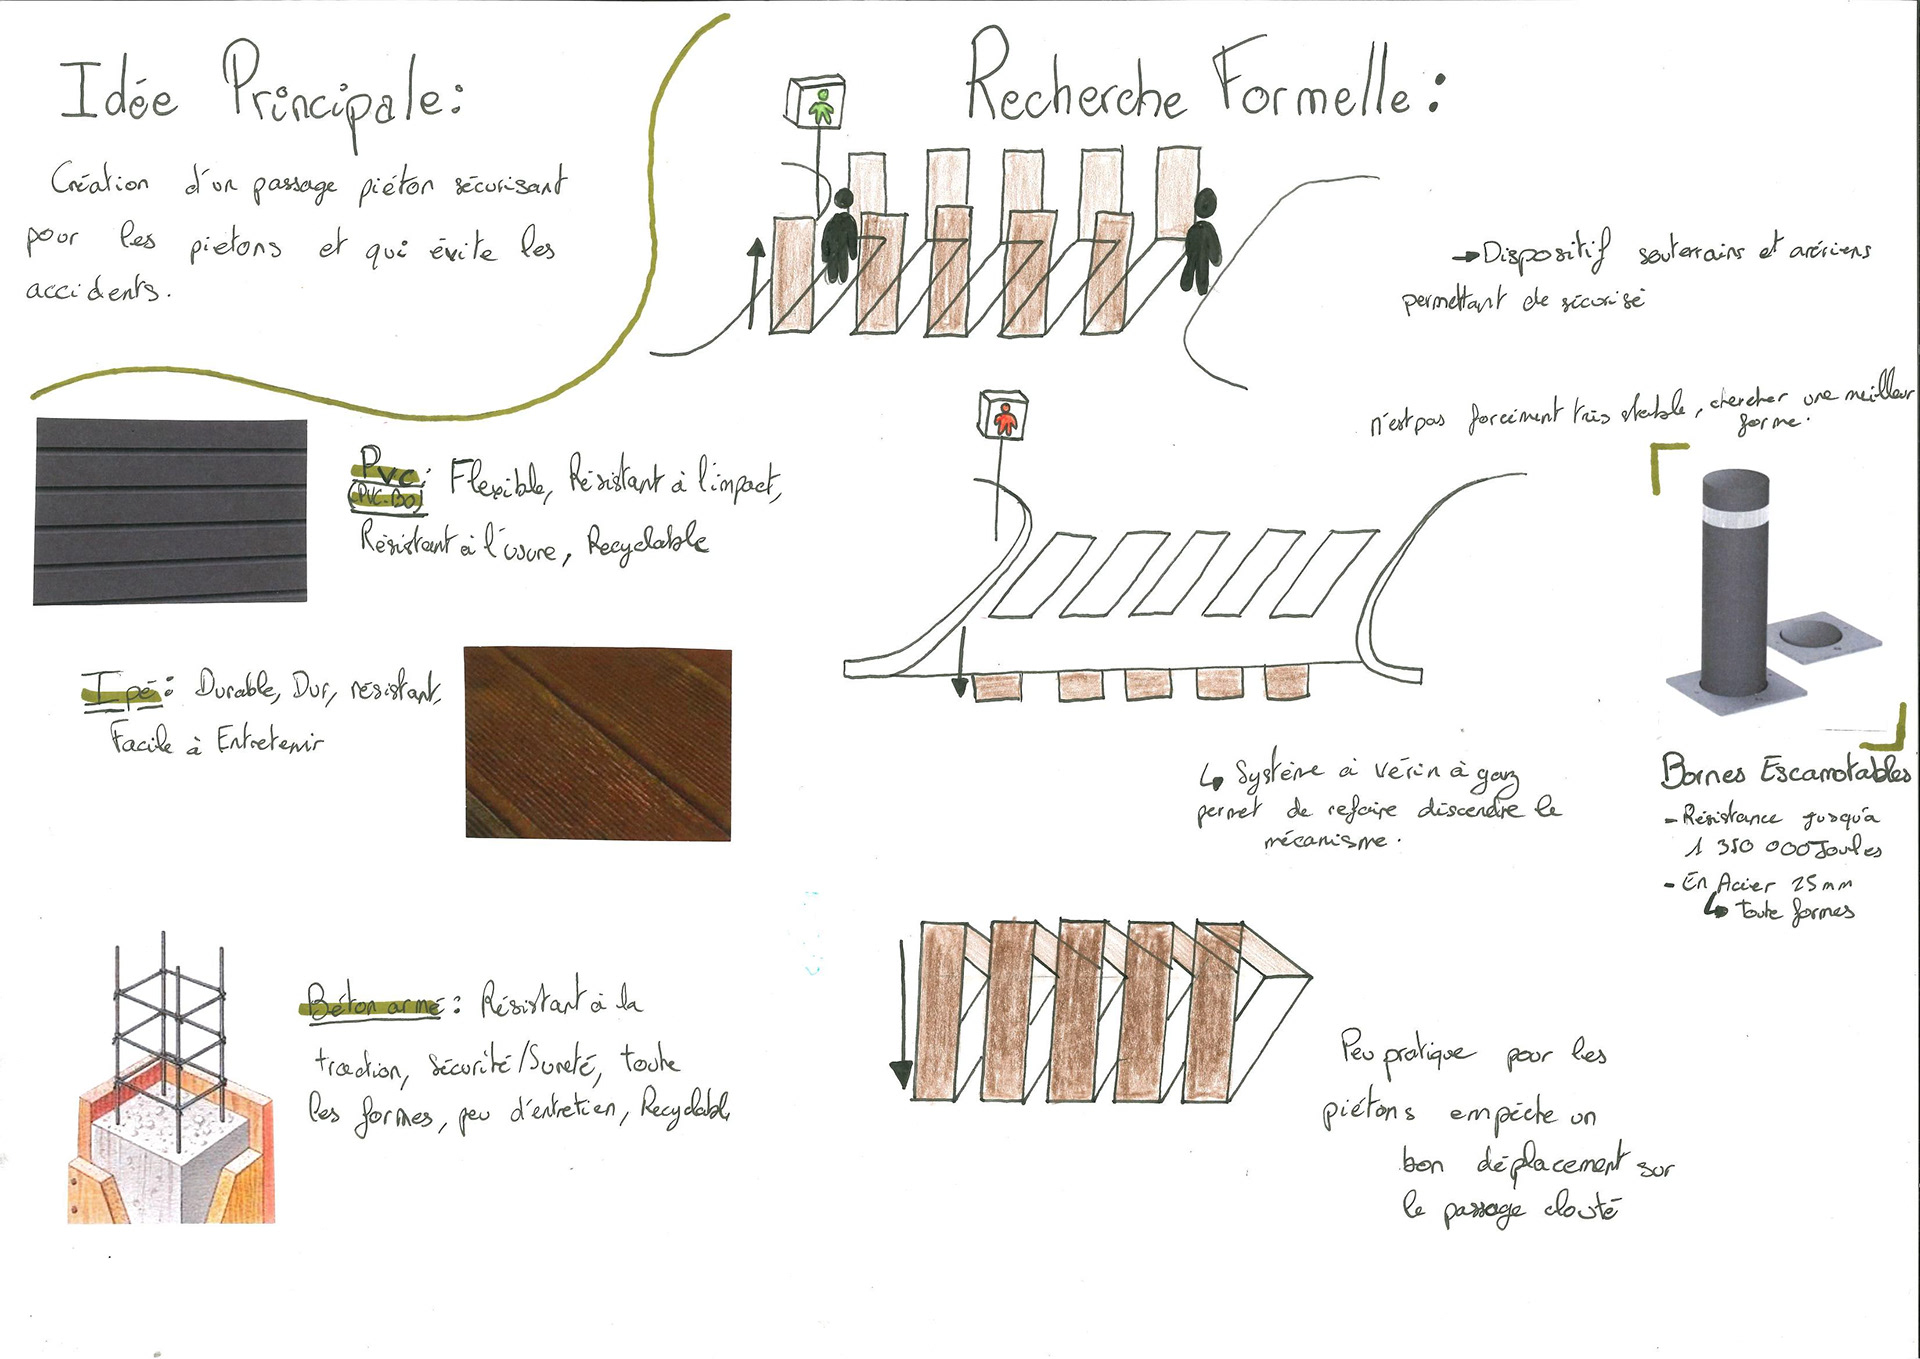 Idée Principale:
Création d'un passage piéton sécurisant
pour les piétons et qui évite les
accidents.
Pvc: Flexible, Résistant à l'impact,
(PVC-BO)
Résistant à l'usure, Recyclable
Ipé: Durable, Dur, résistant,
Facile à Entretenir
Béton armé: Résistant à la
traction, Sécurité/Sureté, toute
les formes, peu d'entretien, Recyclable
Recherche Formelle:
→ Dispositif souterrains et arériens
permettant de sécurisé
n'est pas forcément très stable, chercher une meilleur
forme.
↳ Système à vérin à gaz
permet de refaire déscendre le
mécanisme.
Bornes Escamotables
- Résistance jusqu'à
1 350 000 Joules
- En Acier 25mm
↳ toute formes
Peu pratique pour les
piétons empèche un
bon déplacement sur
le passage clouté